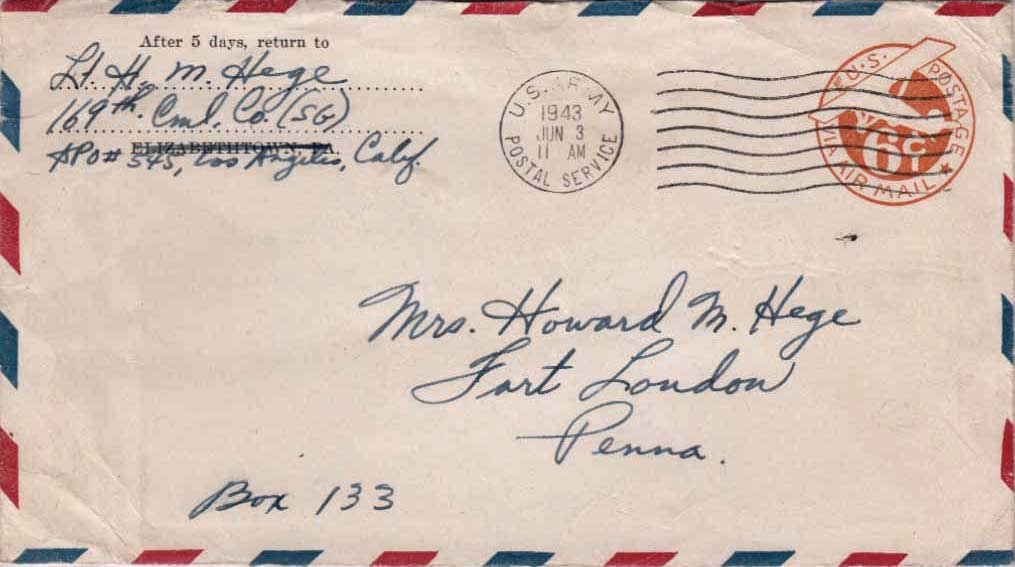 After 5 days, return to
Lt. H. M. Hege
169th Cml. Co. (SG)
ELIZABETHTOWN, PA.
APO# 545, Los Angeles, Calif.
U.S. ARMY
1943
JUN 3
11 AM
POSTAL SERVICE
U.S. POSTAGE
6¢
VIA AIR MAIL
Mrs. Howard M. Hege
Fort Loudon
Penna.
Box 133